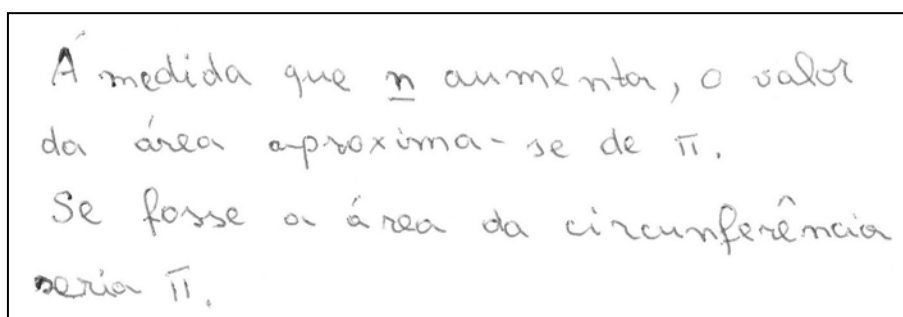 Á medida que n aumenta, o valor
da área aproxima-se de π.
Se fosse a área da circunferência
seria π.